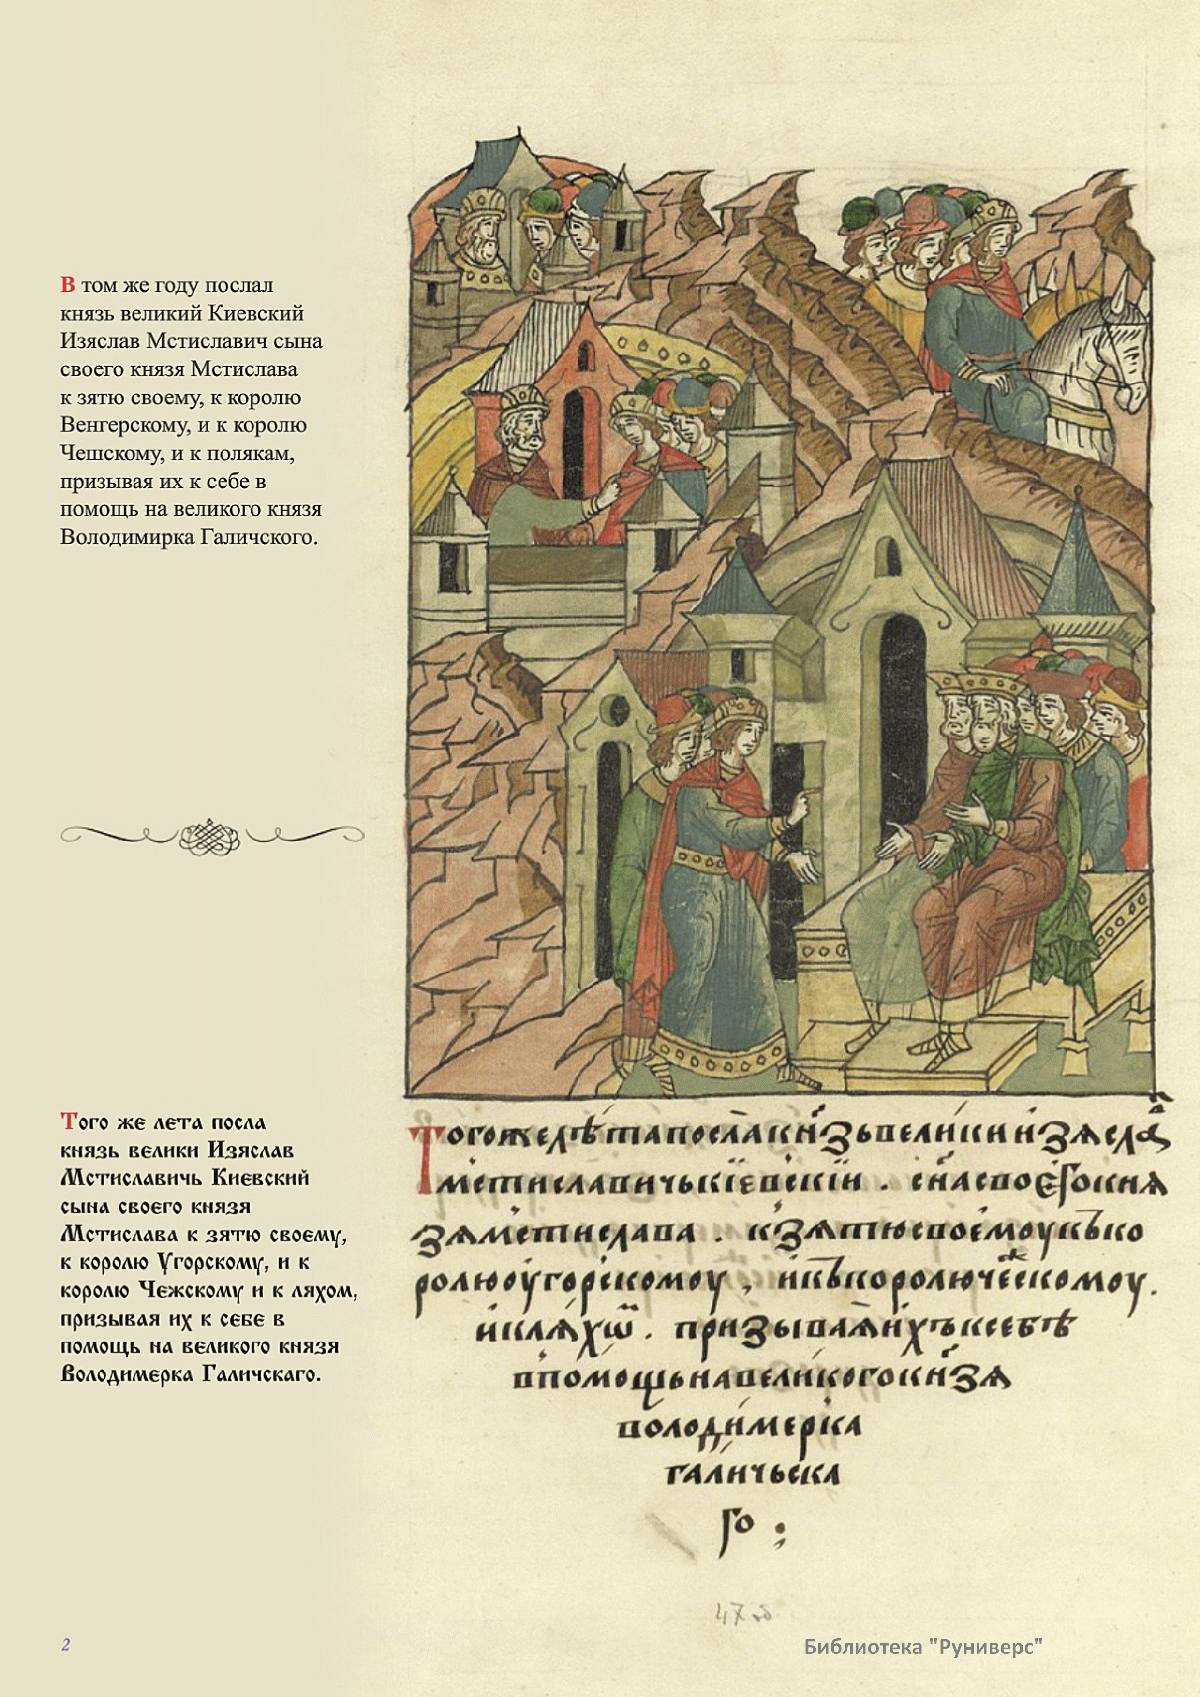 В том же году послал
князь великий Киевский
Изяслав Мстиславич сына
своего князя Мстислава
к зятю своему, к королю
Венгерскому, и к королю
Чешскому, и к полякам,
призывая их к себе в
помощь на великого князя
Володимирка Галичского.
Того же лета посла
князь велики Изяслав
Мстиславичь Киевский
сына своего князя
Мстислава к зятю своему,
к королю Угорскому, и к
королю Чежскому и к ляхом,
призывая их к себе в
помощь на великого князя
Володимерка Галичскаго.
Тогожелѣтапослакн҃зьвеликиизясла
мстиславичькїевскїи . сн҃асвоегокня
зямстислава . кзятюсвоемоукъко
ролюоугорскомоу , икъкоролюческомоу .
иклѧхѡ . призываѧихъксебѣ
впомощьнавеликогокн҃зя
володимерка
галичьска
го :
47 об
2
Библиотека "Руниверс"